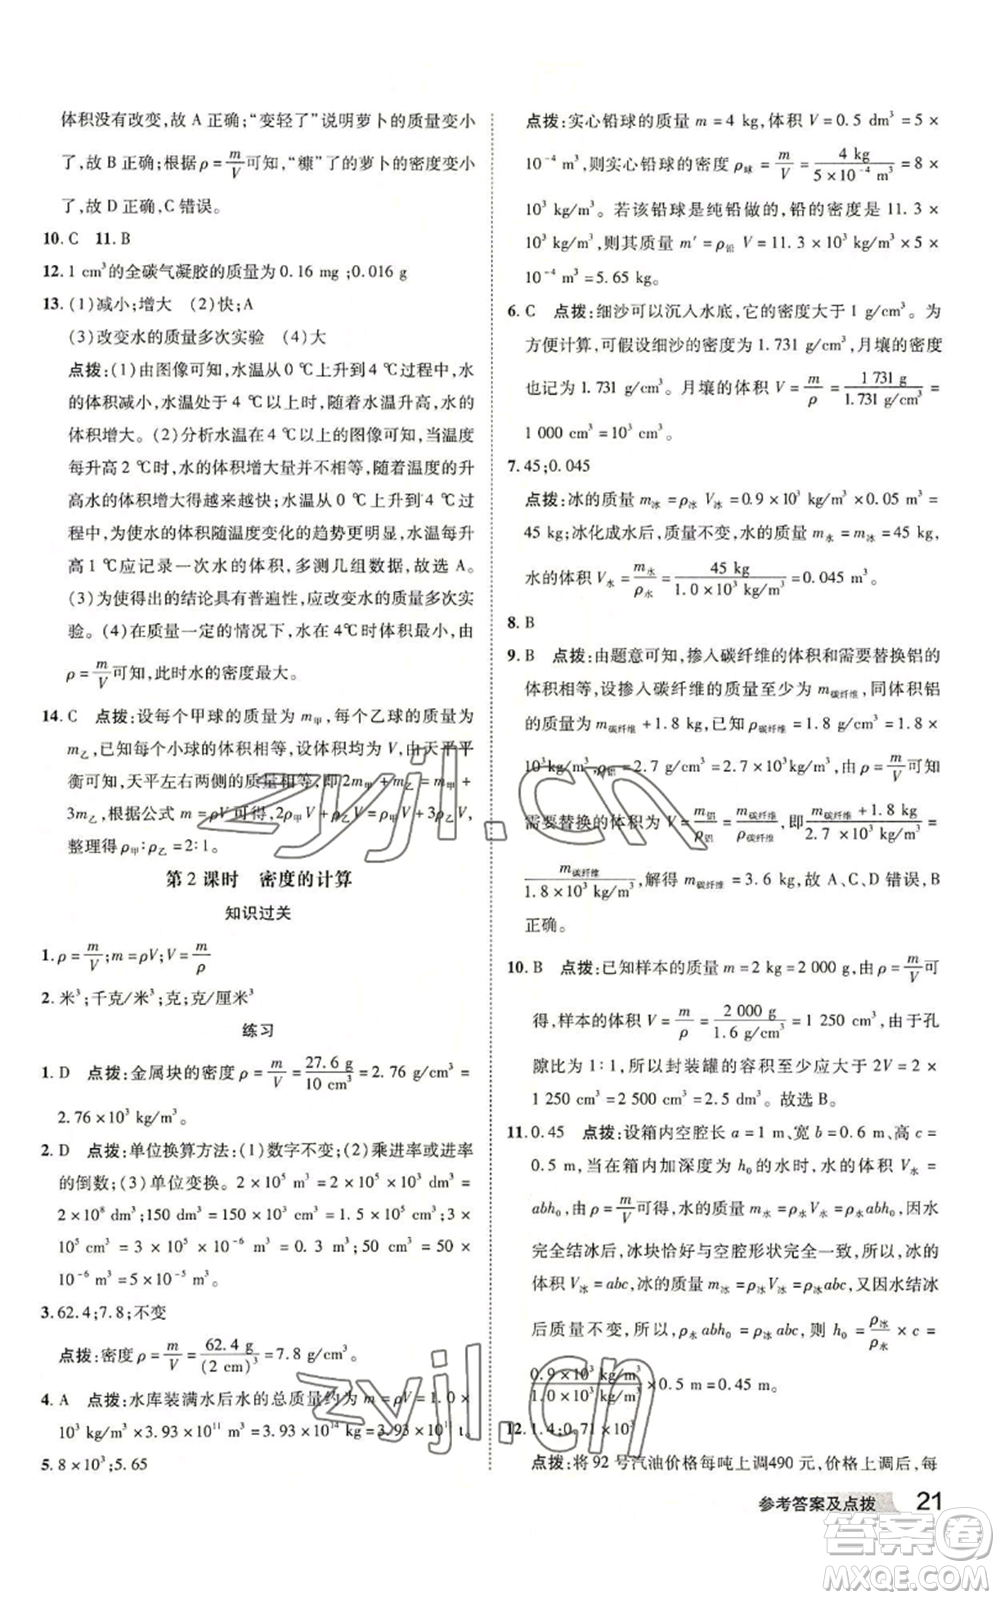 体积没有改变,故 A 正确;“变轻了”说明萝卜的质量变小
了,故 B 正确;根据 ρ = m/V 可知,“糠”了的萝卜的密度变小
了,故 D 正确,C 错误。
10. C 11. B
12. 1 cm³的全碳气凝胶的质量为 0.16 mg;0.016 g
13. (1)减小;增大 (2)快;A
(3)改变水的质量多次实验 (4)大
点拨:(1)由图像可知,水温从 0 ℃上升到 4 ℃过程中,水
的体积减小,水温处于 4 ℃以上时,随着温度升高,水的
体积增大。(2)分析水温在 4 ℃以上的图像可知,温度
每升高 2 ℃时,水的体积增大量并不相等,随着温度的升
高水的体积增大得越来越快;水温从 0 ℃上升到 4 ℃
过程中,为使水的体积随温度变化的趋势更明显,水温升
高 1 ℃应记录一次水的体积,多测几组数据,故选 A。
(3)为使得出的结论具有普遍性,应改变水的质量多次实
验。(4)在质量一定的情况下,水在 4℃时体积最小,由
ρ = m/V 可知,此时水的密度最大。
14. C 点拨:设每个甲球的质量为 m甲,每个乙球的质量为
m乙,已知每个小球的体积都相等,均为V,由天平平
衡可知,天平左右两侧的质量相等,即2m甲 + m乙 = m甲 +
3m乙,根据公式 m = ρV 可得,2ρ甲V + ρ乙V = ρ甲V + 3ρ乙V,
整理得 ρ甲:ρ乙 = 2:1。
第 2 课时 密度的计算
知识过关
1. ρ = m/V; m = ρV; V = m/ρ
2. 米³;千克/米³;克;克/厘米³
练习
1. D 点拨:金属块的密度 ρ = m/V = 27.6 g/10 cm³ = 2.76 g/cm³ =
2.76 × 10³ kg/m³。
2. D 点拨:单位换算方法:(1)数字不变;(2)乘进率或进率
的倒数;(3)单位变换。2 × 10⁵ m³ = 2 × 10⁵ × 10³ dm³ =
2 × 10⁸ dm³;150 dm³ = 150 × 10³ cm³ = 1.5 × 10⁵ cm³;3 ×
10⁵ cm³ = 3 × 10⁵ × 10⁻⁶ m³ = 0.3 m³;50 cm³ = 50 ×
10⁻⁶ m³ = 5 × 10⁻⁵ m³。
3. 62.4;7.8;不变
点拨:密度 ρ = m/V = 62.4 g/(2 cm)³ = 7.8 g/cm³。
4. A 点拨:水库装满水后水的总质量约为 m = ρV = 1.0 ×
10³ × 3.93 × 10¹¹ = 3.93 × 10¹⁴ kg = 3.93 × 10¹¹ t。
5. 8 × 10³;5.65
点拨:实心铅球的质量 m = 4 kg,体积 V = 0.5 dm³ = 5 ×
10⁻⁴ m³,则实心铅球的密度 ρ球 = m/V = 4 kg/5 × 10⁻⁴ m³ = 8 ×
10³ kg/m³。若该铅球是纯铅做的,铅的密度是 11.3 ×
10³ kg/m³,则其质量 m′ = ρ铅 V = 11.3 × 10³ × 5 ×
10⁻⁴ m³ = 5.65 kg。
6. C 点拨:细沙可以沉入水底,它的密度大于 1 g/cm³。为
方便计算,可假设细沙的密度为 1.731 g/cm³,月壤的密度
也记为 1.731 g/cm³。月壤的体积 V = m/ρ = 1 731 g/1.731 g/cm³ =
1 000 cm³ = 10³ cm³。
7. 45;0.045
点拨:冰的质量 m冰 = ρ冰 V冰 = 0.9 × 10³ × 0.05 m³ =
45 kg,冰化成水后,质量不变,水的质量 m水 = m冰 = 45 kg,
水的体积 V水 = m水/ρ水 = 45 kg/1.0 × 10³ kg/m³ = 0.045 m³。
8. B
9. B 点拨:由题意可知,掺入碳纤维的体积和需要替换铝的
体积相等,设掺入碳纤维的质量为 m碳纤维,同体积铝
的质量为 m碳纤维 + 1.8 kg,已知 ρ碳纤维 = 1.8 g/cm³ = 1.8 ×
10³ kg/m³,ρ铝 = 2.7 g/cm³ = 2.7 × 10³ kg/m³,由 ρ = m/V 可知
需要替换的体积为 V = m铝/ρ铝 = m碳纤维/ρ碳纤维,即 m碳纤维 + 1.8 kg/2.7 × 10³ kg/m³ =
m碳纤维/1.8 × 10³ kg/m³,解得 m碳纤维 = 3.6 kg,故 A、C、D 错误,B
正确。
10. B 点拨:已知样本的质量 m = 2 kg = 2 000 g,由 ρ = m/V 可
得,样本的体积 V = m/ρ = 2 000 g/1.6 g/cm³ = 1 250 cm³,由于孔
隙比为 1:1,所以封装罐的容积至少应大于 2V = 2 ×
1 250 cm³ = 2 500 cm³ = 2.5 dm³。故选 B。
11. 0.45 点拨:设箱内空腔长 a = 1 m,宽 b = 0.6 m,高 c =
0.5 m,当在箱内加满深度为 h₀ 的水时,水的体积 V水 =
abh₀,由 ρ = m/V 可知,水的质量 m水 = ρ水V水 = ρ水abh₀,水
完全结冰后,冰块恰好与空腔形状完全一致,所以,冰的
体积 V冰 = abc,冰的质量 m冰 = ρ冰V冰 = ρ冰abc,又因水结冰
后质量不变,所以,ρ水 abh₀ = ρ冰 abc,则 h₀ = ρ冰/ρ水 × c =
0.9 × 10³/1.0 × 10³ × 0.5 m = 0.45 m。
12. 1.4;0.71 × 10³
点拨:将 92 号汽油价格每吨上调490 元,价格上调后,每
参考答案及点拨 21
zyjl.cn
zyjl.cn
答案卷
MXQE.COM